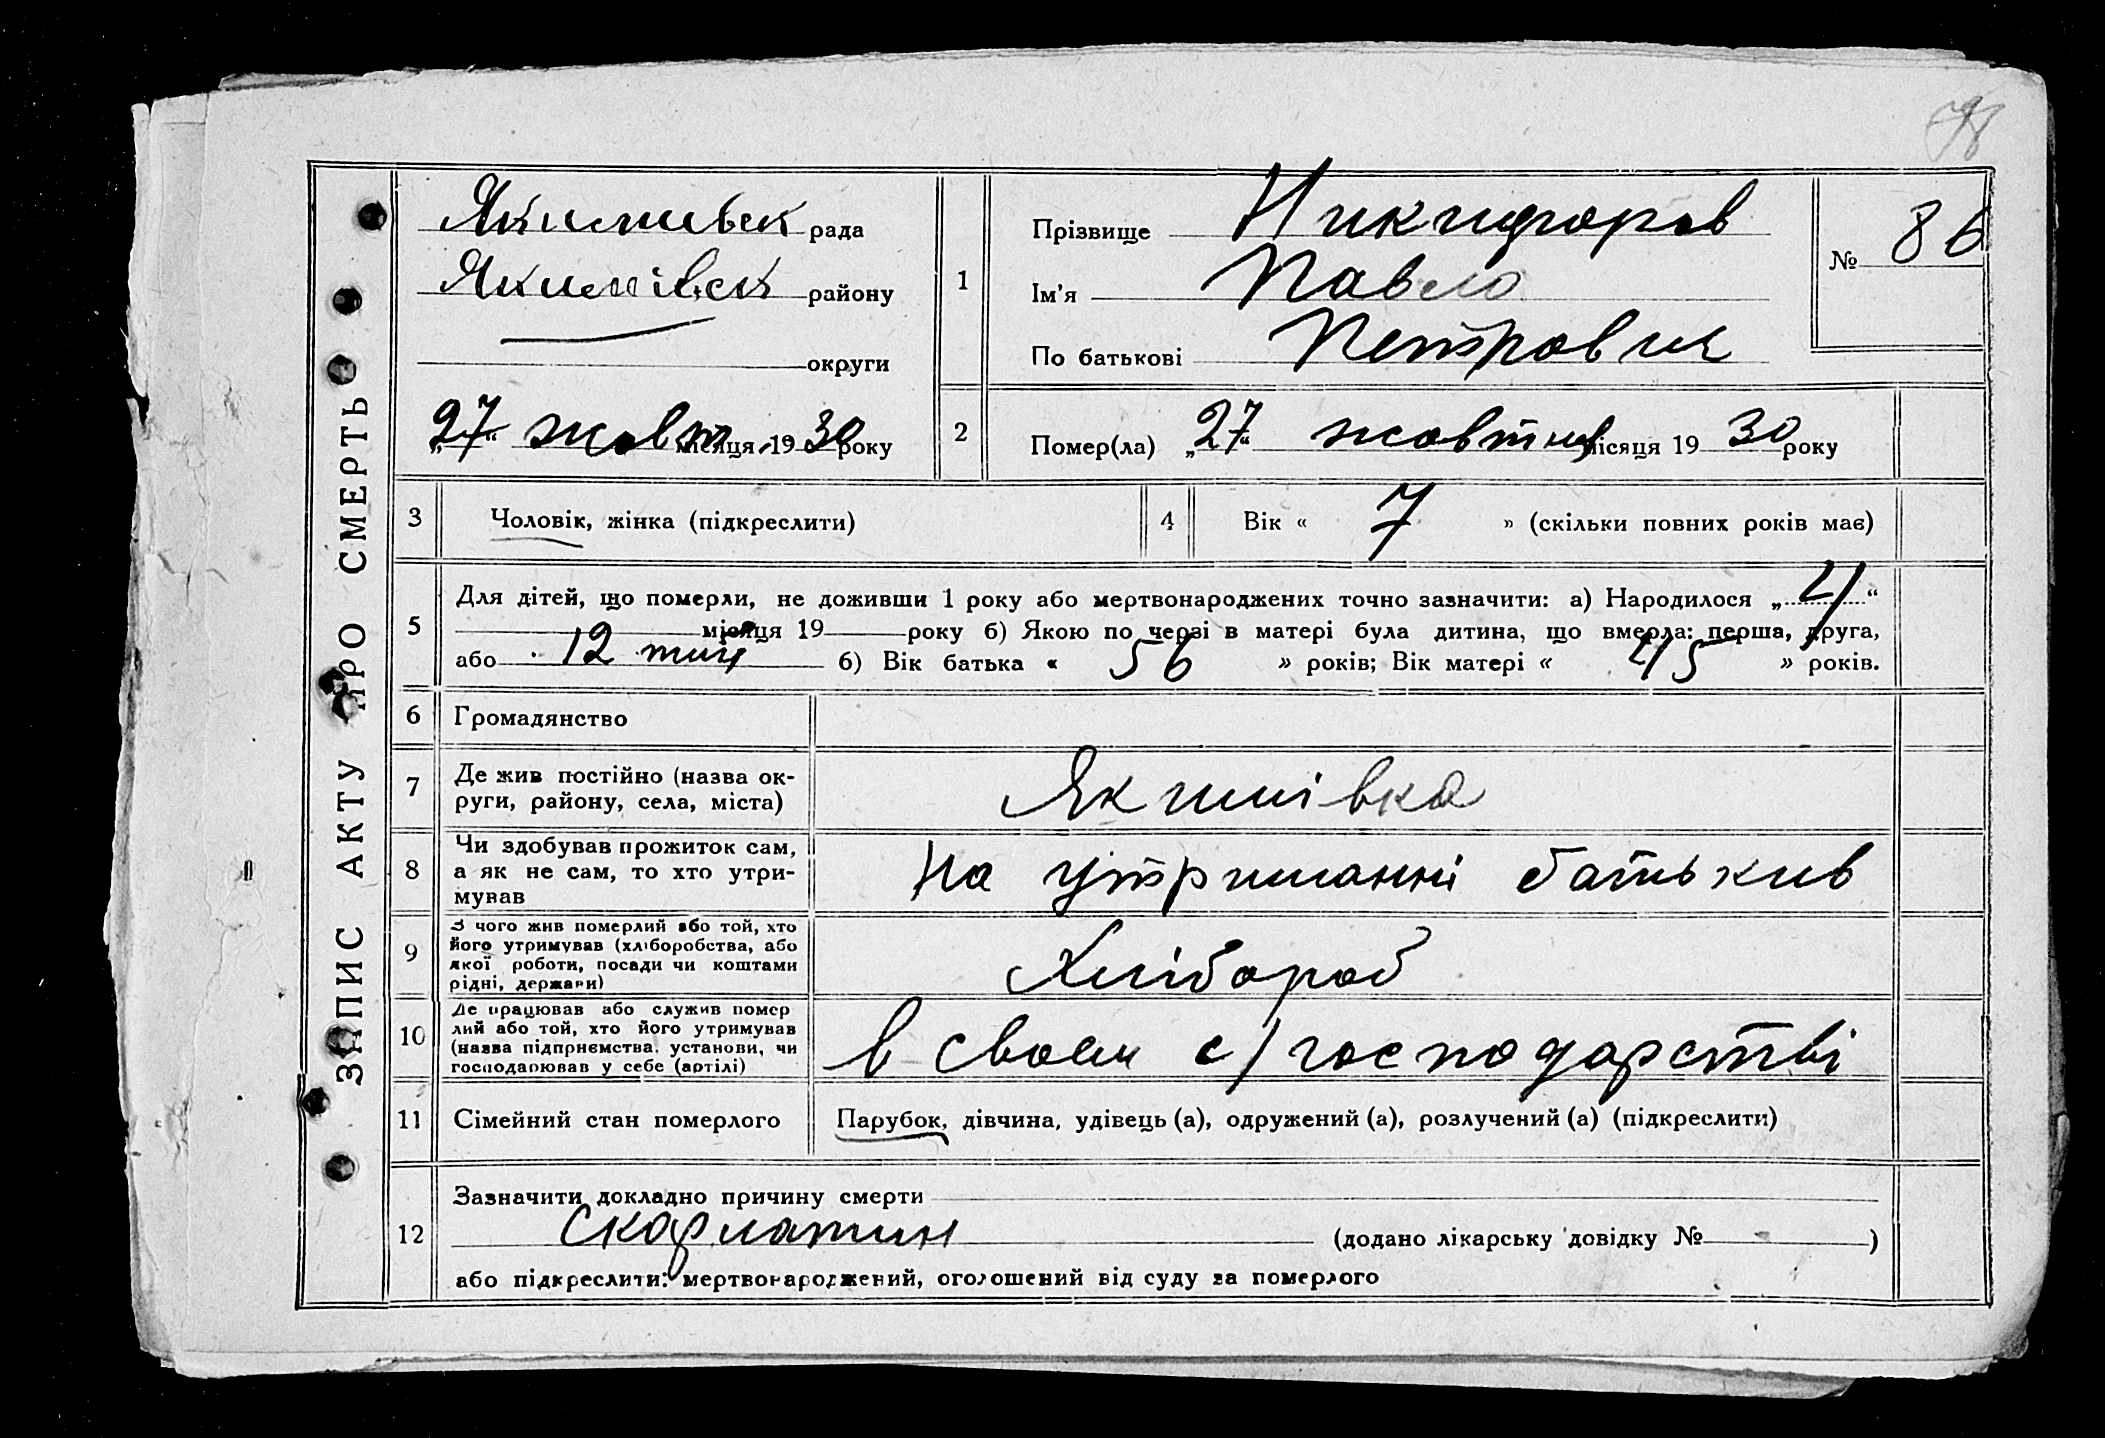 ЗАПИС АКТУ ПРО СМЕРТЬ
Якимивск рада
Якимівск району
округи
„27“ жовт місяця 1930 року
1
Прізвище Никифоров
Ім'я Павло
По батькові Петрович
№ 86
2
Помер(ла) „27“ жовтня місяця 1930 року
3
Чоловік, жінка (підкреслити)
4
Вік « 7 » (скільки повних років має)
5
Для дітей, що померли, не доживши 1 року або мертвонароджених точно зазначити: а) Народилося „ “
місяця 19 року б) Якою по черзі в матері була дитина, що вмерла: перша, друга,
або 12 тий б) Вік батька « 56 » років; Вік матері « 45 » років.
6
Громадянство
7
Де жив постійно (назва ок-
руги, району, села, міста)
Якимівка
8
Чи здобував прожиток сам,
а як не сам, то хто утри-
мував
На утриманні батькив
9
З чого жив померлий або той, хто
його утримував (хліборобства, або
якої роботи, посади чи коштами
рідні, держави)
Хлібороб
10
Де працював або служив помер
лий або той, хто його утримував
(назва підприємства, установи, чи
господарював у себе (артілі)
в своем с/господарстві
11
Сімейний стан померлого
Парубок, дівчина, удівець (а), одружений (а), розлучений (а) (підкреслити)
12
Зазначити докладно причину смерти
Скарлатин
(додано лікарську довідку № - )
або підкреслити: мертвонароджений, оголошений від суду за померлого